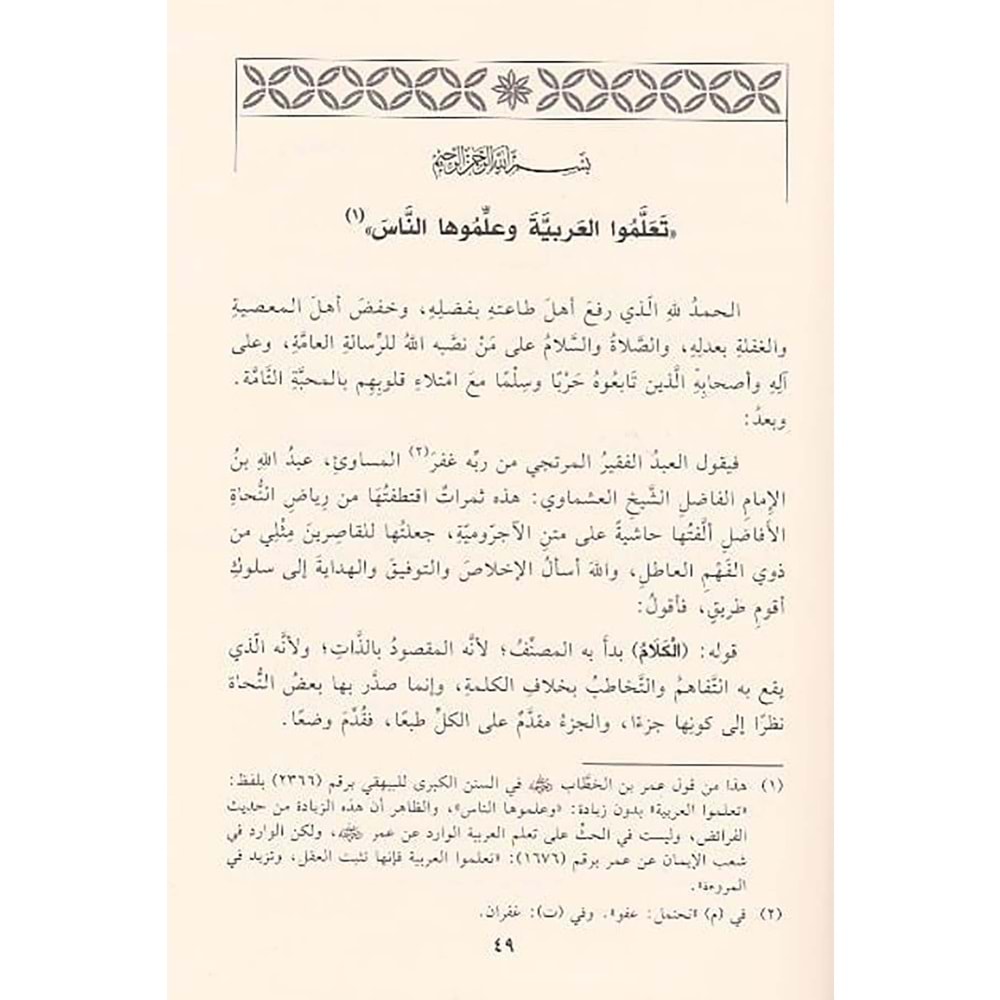 بسم الله الرحمن الرحيم
«تَعَلَّمُوا العَربيَّةَ وعلِّمُوها النَّاسَ»(١)
الحمدُ للهِ الَّذي رفعَ أهلَ طاعتهِ بفضلِهِ، وخفضَ أهلَ المعصيةِ
والغفلةِ بعدلِهِ، والصَّلاةُ والسَّلامُ على مَنْ نصَّبه اللهُ للرِّسالةِ العامَّةِ، وعلى
آلِهِ وأصحابِهِ الَّذين تَابعُوهُ حَرْبًا وسِلْمًا معَ امْتلاءِ قلوبِهِم بالمحبَّةِ التَّامَّة.
وبعدُ:
فيقول العبدُ الفقيرُ المرتجي من ربِّه غفرَ(٢) المساوئِ، عبدُ اللهِ بنُ
الإمامِ الفاضلِ الشَّيخِ العشماوي: هذه ثمراتٌ اقتطفتُهَا من رِياضِ النُّحاةِ
الأفاضلِ ألَّفتُها حاشيةً على متنِ الآجرّوميّةِ، جعلتُها للقاصِرينَ مِثْلِي من
ذوي الفَهْمِ العاطلِ، واللهَ أسألُ الإخلاصَ والتوفيقَ والهدايةَ إلى سلوكِ
أقومِ طريقٍ، فأقولُ:
قوله: (الْكَلَامُ) بدأَ به المصنِّفُ؛ لأنَّه المقصودُ بالذَّاتِ؛ ولأنَّه الَّذي
يقع به التَّفاهمُ والتَّخاطبُ بخلافِ الكلمةِ، وإنما صدَّر بها بعضُ النُّحاة
نظرًا إلى كونِها جزءًا، والجزءُ مقدَّمٌ على الكلِّ طبعًا، فقُدِّمَ وضعًا.
(١) هذا من قول عمر بن الخطَّاب ﷺ في السنن الكبرى للبيهقي برقم (٢٣٦٦) بلفظ:
«تعلموا العربية» بدون زيادة: «وعلموها الناس»، والظاهر أن هذه الزيادة من حديث
الفرائض، وليست في الحثِّ على تعلم العربية الوارد عن عمر ﷺ، ولكن الوارد في
شعب الإيمان عن عمر برقم (١٦٧٦): «تعلموا العربية فإنها تثبت العقل، وتزيد في
المروءة».
(٢) في (م) «تحتمل: عفو». وفي (ت): غفران.
٤٩